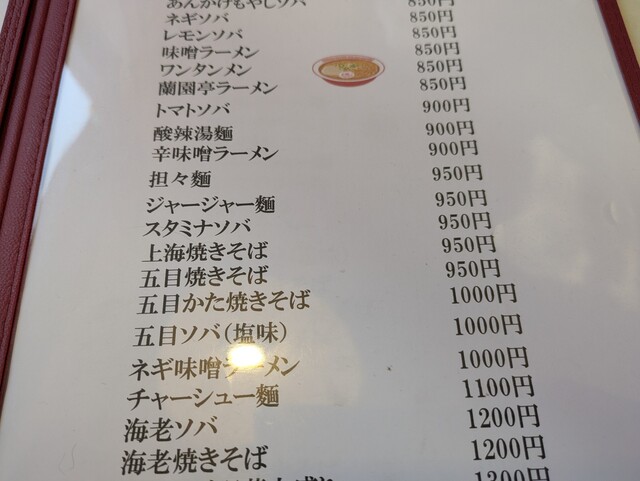 あんかけもやしソバ 850円
ネギソバ 850円
レモンソバ 850円
味噌ラーメン 850円
ワンタンメン 850円
蘭園亭ラーメン 850円
トマトソバ 900円
酸辣湯麺 900円
辛味噌ラーメン 900円
担々麺 950円
ジャージャー麺 950円
スタミナソバ 950円
上海焼きそば 950円
五目焼きそば 950円
五目かた焼きそば 1000円
五目ソバ(塩味) 1000円
ネギ味噌ラーメン 1000円
チャーシュー麺 1100円
海老ソバ 1200円
海老焼きそば 1200円